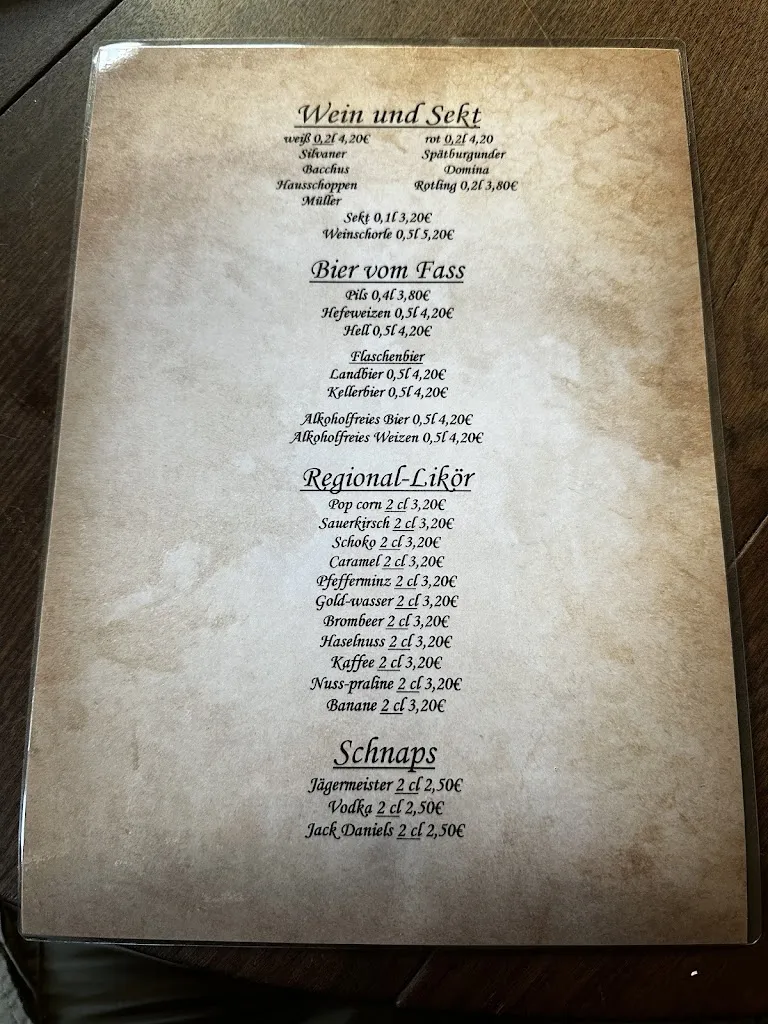 Wein und Sekt
weiß 0,2l 4,20€ rot 0,2l 4,20
Silvaner Spätburgunder
Bacchus Domina
Hausschoppen Rotling 0,2l 3,80€
Müller
Sekt 0,1l 3,20€
Weinschorle 0,5l 5,20€
Bier vom Fass
Pils 0,4l 3,80€
Hefeweizen 0,5l 4,20€
Hell 0,5l 4,20€
Flaschenbier
Landbier 0,5l 4,20€
Kellerbier 0,5l 4,20€
Alkoholfreies Bier 0,5l 4,20€
Alkoholfreies Weizen 0,5l 4,20€
Regional-Likör
Pop corn 2 cl 3,20€
Sauerkirsch 2 cl 3,20€
Schoko 2 cl 3,20€
Caramel 2 cl 3,20€
Pfefferminz 2 cl 3,20€
Gold-wasser 2 cl 3,20€
Brombeer 2 cl 3,20€
Haselnuss 2 cl 3,20€
Kaffee 2 cl 3,20€
Nuss-praline 2 cl 3,20€
Banane 2 cl 3,20€
Schnaps
Jägermeister 2 cl 2,50€
Vodka 2 cl 2,50€
Jack Daniels 2 cl 2,50€